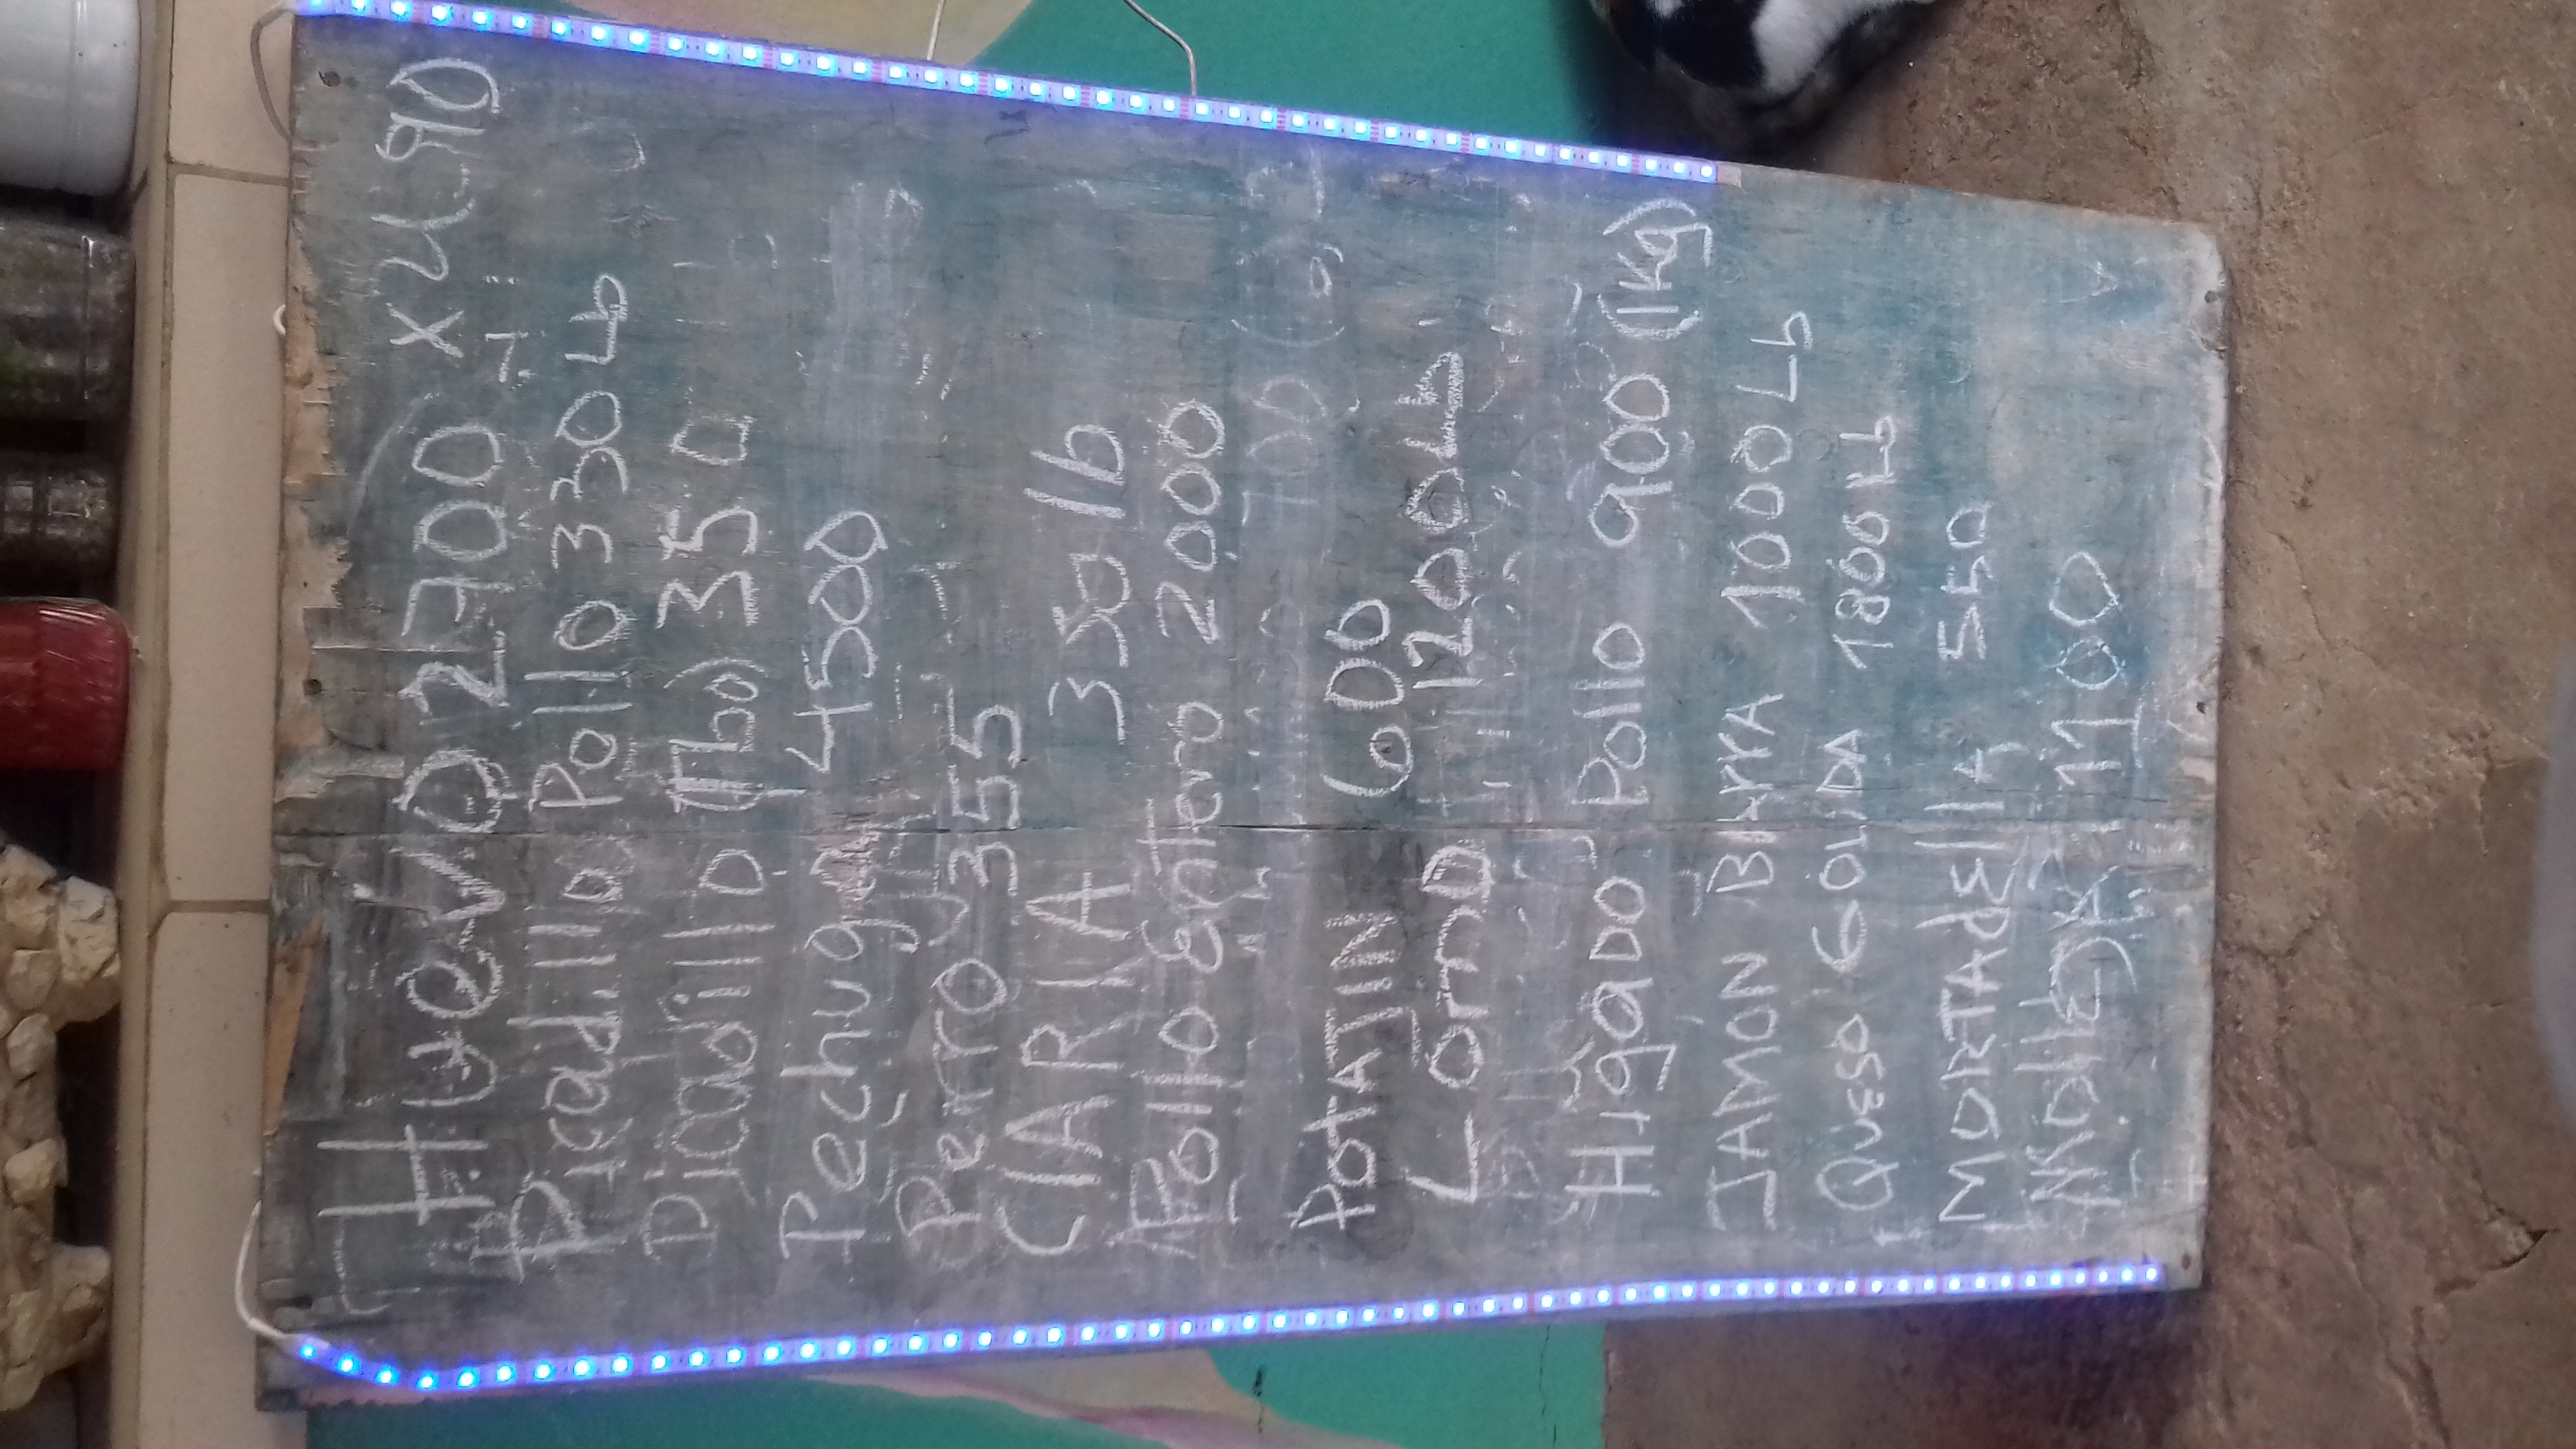 Huevo 2700 x U 90
Picadillo Pollo 330 Lb
Picadillo (Tbo) 350
Pechuga 4500
Perro 355
CLARIA 350 lb
Pollo Entero 2000
700
POTAJIN 600
Lomo 1200 Lb
Higado Pollo 900 (1Kg)
JAMON BArrA 1000 Lb
QUESO GOUDA 1800 Lb
MORTAdEllA 550
MollejA 1100